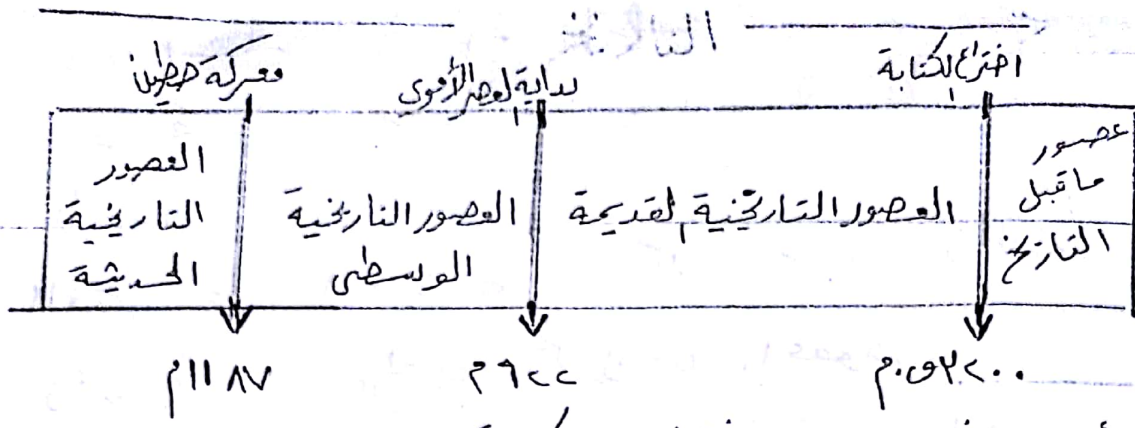 التاريخ
اختراع الكتابة
بداية العصر الأموي
معركة حطين
عصور
ما قبل
التاريخ
العصور التاريخية القديمة
العصور التاريخية
الوسطى
العصور
التاريخية
الحديثة
٣٢٠٠ ق.م
٩٢٢م
١١٨٧م